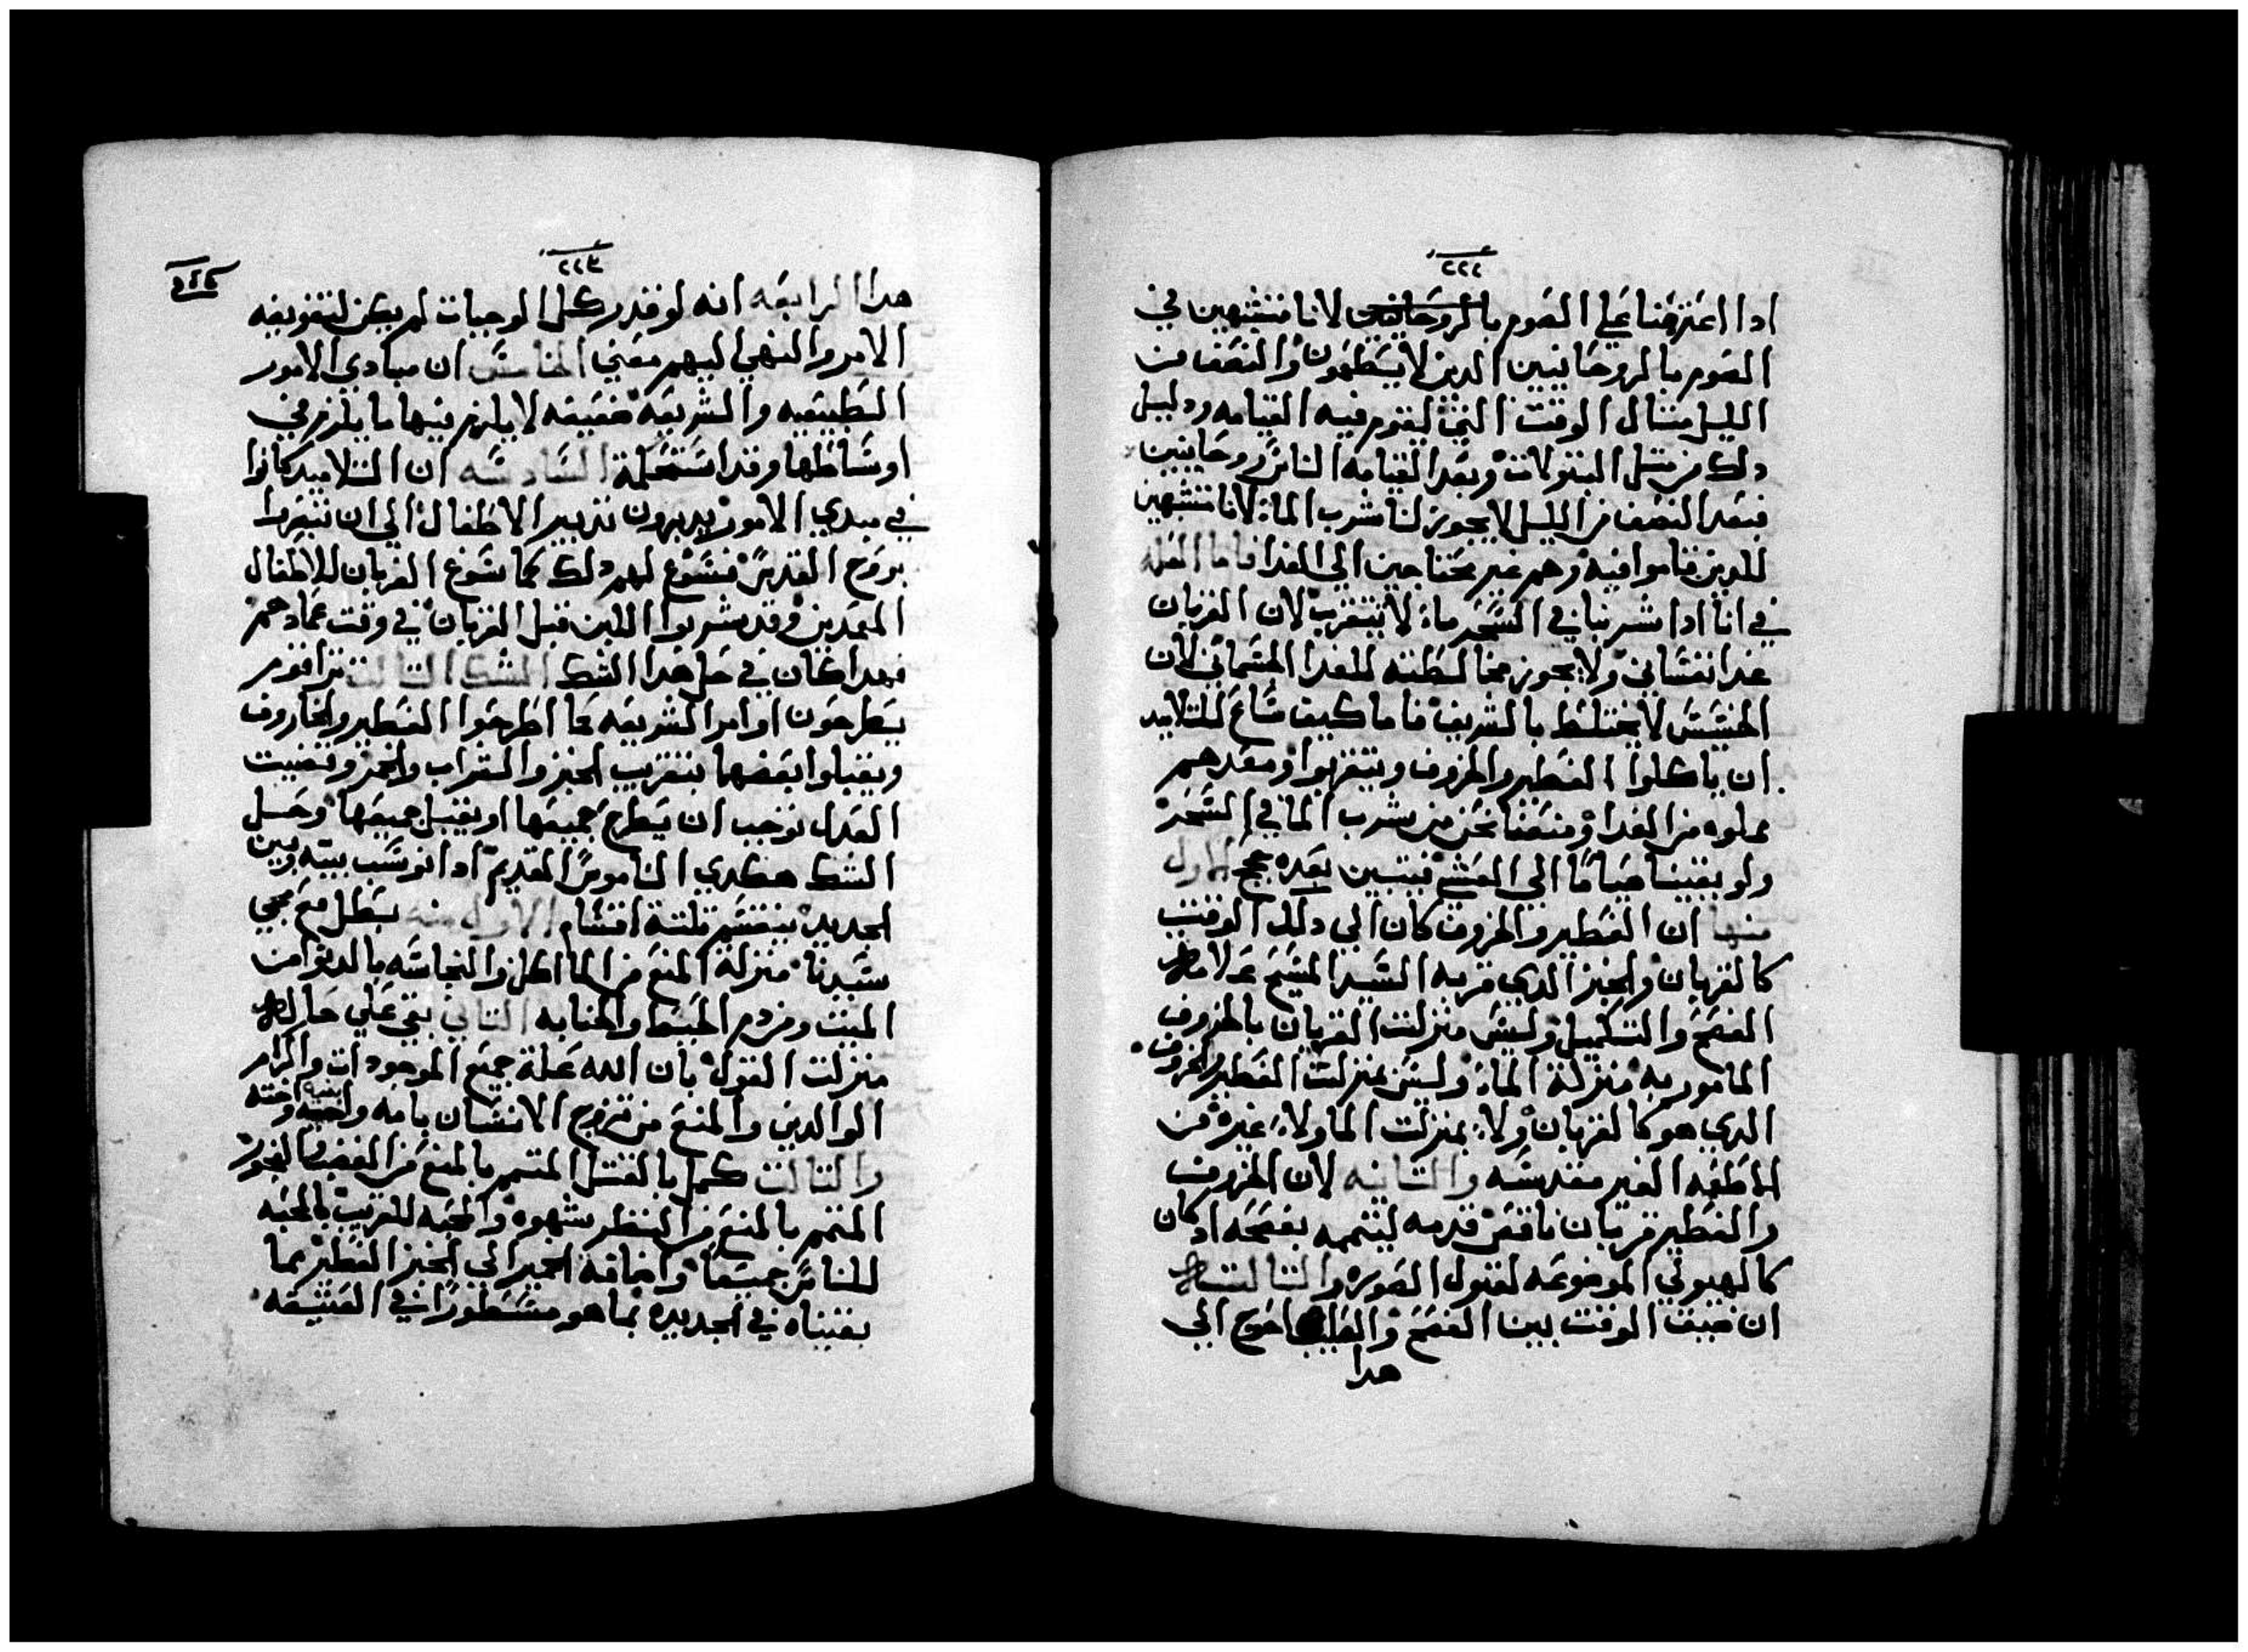 ٢٢٢
ادا اعترضنا علي الصوم بالروحانيين لانا متشبهين في
الصوم بالروحانيين الدين لا يتطهرون والنصف من
الليل مثال الوقت التي تقوم فيه القيامه ودليل
دلك من مثل البتولات وبعد القيامه الناس روحانيين
فبعد النصف من الليل لا يجوز لنا شرب الما لانا متشبهين
للدين قاموا فيه وهم غير محتاجين الي الغدا فاما العله
في انا ادا شربنا في السحر ماء لا نتقرب لان القربان
غدا نفساني ولا يجوز مخالطته للغدا الجسماني لان
الخسيس لا يختلط بالشريف فاما كيف ساغ للتلاميد
ان ياكلوا الفطير والخروف ويتقربوا ومعدهم
مملوه من الغدا ومنعنا نحن من شرب الما في السحر
ولو بقينا صياما الي العشي فيتبين بعده حجج الاول
منها ان الفطير والخروف كان الي دلك الوقت
كالقربان والخبز الدي قربه السيد المسيح علامه
الفصح والتكميل وليس منزلت القربان بالخروف
المامور به منزلة الماء وليس بمنزلت الفطير والخروف
الدي هو كالقربان ولا بمنزلت الما ولا غيره من
الاطعمه الغير مقدسه والتانيه لان الخروف
والفطير قربان ناقص قدمه ليتممه بفصحه اد كان
كالهيولي الموضوعه لقبول الصوره والتالته
ان ضيق الوقت بين الفصح والصلب احوج الي
هدا
٢٢٣
هدا الرابعه انه لو قدر كل الوجبات لم يكن لتفويضه
الامر والنهي اليهم معني الخامسه ان مبادي الامور
الطبيعيه والشريعه ضعيفه لا يلزم فيها ما يلزم في
اوساطها وقد استحكمة السادسه ان التلاميد كانوا
في مبدي الامور يدبرون تدبير الاطفال الي ان تتقوا
بروح القدس فسوغ لهم دلك كما سوغ القربان للاطفال
المعمدين وقد شربوا اللبن قبل القربان في وقت عمادهم
فهدا كان في حل هدا الشك الشك التالت تراهم
يطرحون اوامر الشريعه كما اطرحوا الفطير والخاروف
ويقبلوا بعضها بتقريب الخبز والشراب والخمر وقضيت
العدل توجب ان يطرح جميعها او يقبل جميعها وحل
الشك هكدي الناموس القديم ادا نوسب بينه وبين
الجديد ينقسم تلتة اقسام الاول منه بطل مع مجي
سيدنا منزلة المنع من الماكل والنجاسه بالدنو من
الميت ومن دم الحيض والجنابه التاني بقي علي حاله
منزلت القول بان الله علة جميع الموجودات واكرام
الوالدين والمنع من تزوج الانسان بامه وابنته واخته
والتالت كمل بالقتل المتمم بالمنع من الغضب والفجور
المتمم بالمنع من النظر بشهوه والمحبه للقريب بالمحبه
للناس جميعا واضافة الخمير الي الخبز الفطير مما
بقيناه في الجديده مما هو مسطورا في العتيقه